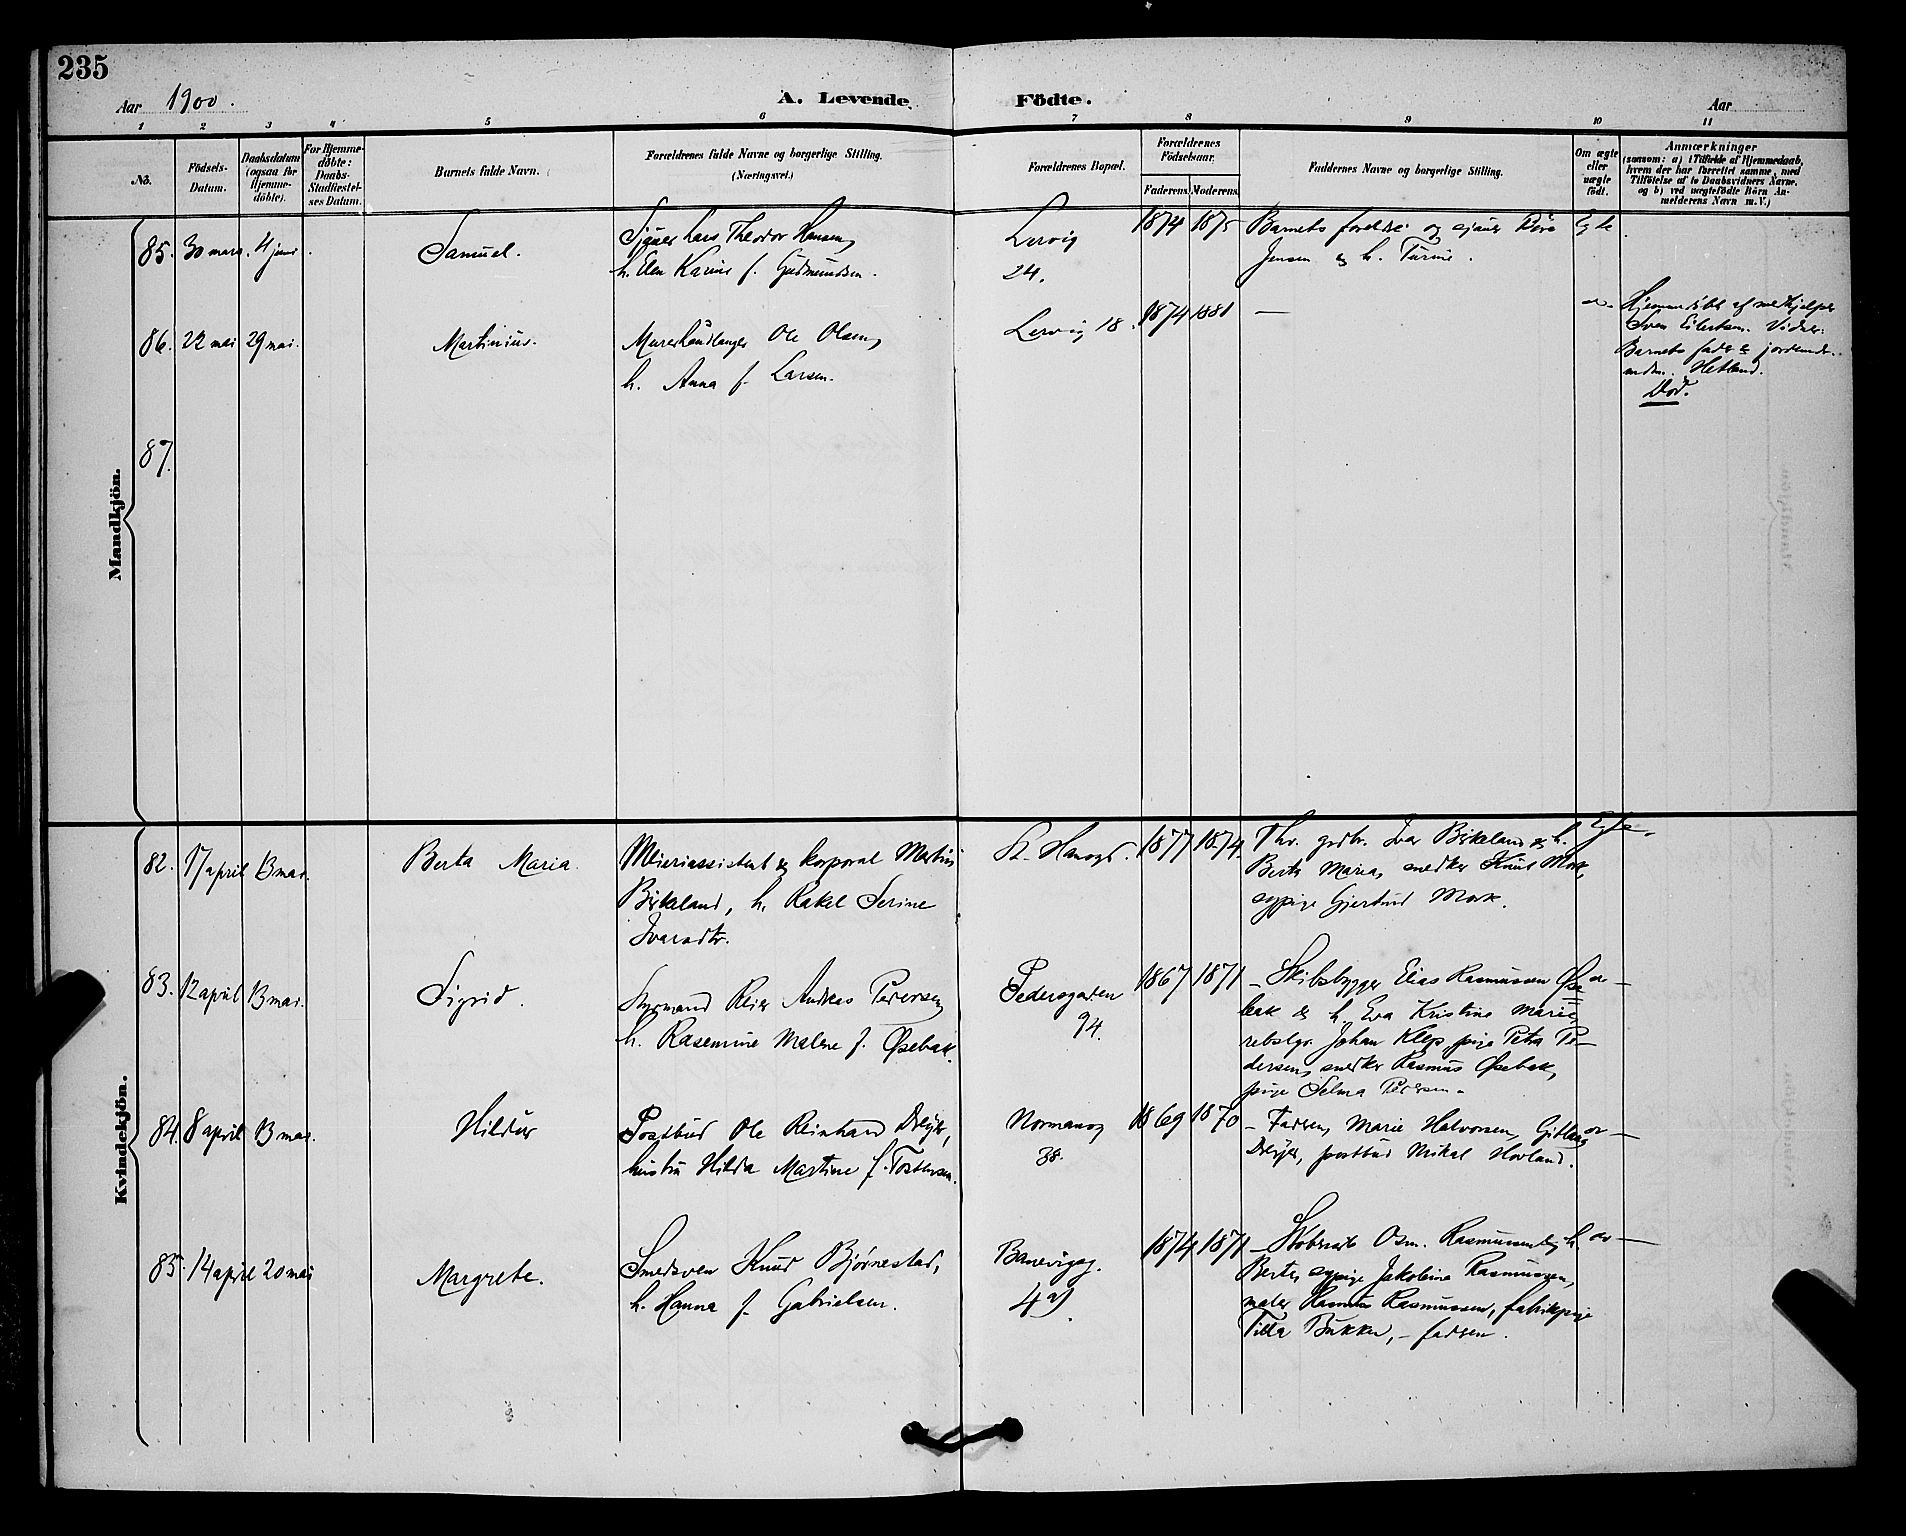 235
Aar 1900.
A. Levende Födte.
Aar
1 2 3 4 5 6 7 8 9 10 11
No.
Födsels-
Datum.
Daabsdatum
(ogsaa for
Hjemme-
döbte).
For Hjemme-
döbte:
Daabs-
Stadfæstel-
ses Datum.
Barnets fulde Navn.
Forældrenes fulde Navne og borgerlige Stilling.
(Næringsvei.)
Forældrenes Bopæl.
Forældrenes
Födselsaar.
Faderens. Moderens.
Faddernes Navne og borgerlige Stilling.
Om ægte
eller
uægte
født.
Anmærkninger
(saasom: a) i Tilfælde af Hjemmedaab,
hvem der har forrettet samme, med
Tilföielse af to Daabsvidners Navne,
og b) ved uægtefödte Börn An-
melderens Navn m.V.)
Mandkjön.
85. 30 mars. 4 juni
Samuel.
Sjauer Lars Theodor Hansen,
h. Elen Karine f. Gudmundsen.
Lervig
24.
1874 1875
Barnets foreldre og sjauer
Jensen & h. Turine.
Egte
86. 22 mai 29 mai.
Martinius.
Murerhåndlanger Ole Olsen,
h. Anna f. Larsen.
Lervig 18.
1874 1881
—
Hjemmedöbt af medhjelper
Sven Eilertsen. Vidner:
Barnets fader & jordemdr.
mdm. Hetland.
Död.
87.
Kvindekjön.
82. 17 april 13 mai.
Berta Maria.
Meieriassistent & korporal Martin
Birkeland, h. Rakel Serine
Ivarsdtr.
St. Hansgd.
1877 1874.
Thv. grdbr. Ivar Birkeland & h.
Berta Maria, snedker Knut Mork,
sypige Gjertrud Mork.
Egte.
83. 12 april 13 mai.
Sigrid.
Styrmand Reier Andreas Pedersen,
h. Rasmine Malene f. Øsebak.
Pedersgaden
94.
1867 1871
— Skibsbygger Elias Rasmussen Øse-
bak & h. Eva Kristine Marie,
rebslgr. Johan Klep, pige Petra Pe-
dersen, snedker Rasmus Øsebak,
pige Selma Pedersen.
84. 8 april 13 mai.
Hildur
Postbud Ole Reinhard Dreyer,
hustru Hilda Martine f. Tostensen.
Normansg
38.
1869 1870
— Faderen, Marie Halvorsen,
Dreyer, postbud Mikal Hovland.
85. 14 april 20 mai
Margrete.
Smedsven Knud Bjørnestad,
h. Hanna f. Gabrielsen.
Banevigsg.
4 a).
1874 1871
— Osm. Rasmussen & h.
Berta, sypige Jakobine Rasmussen,
maler Rasmus Rasmussen, fabrikpige
Tilla Bukken, — faderen.